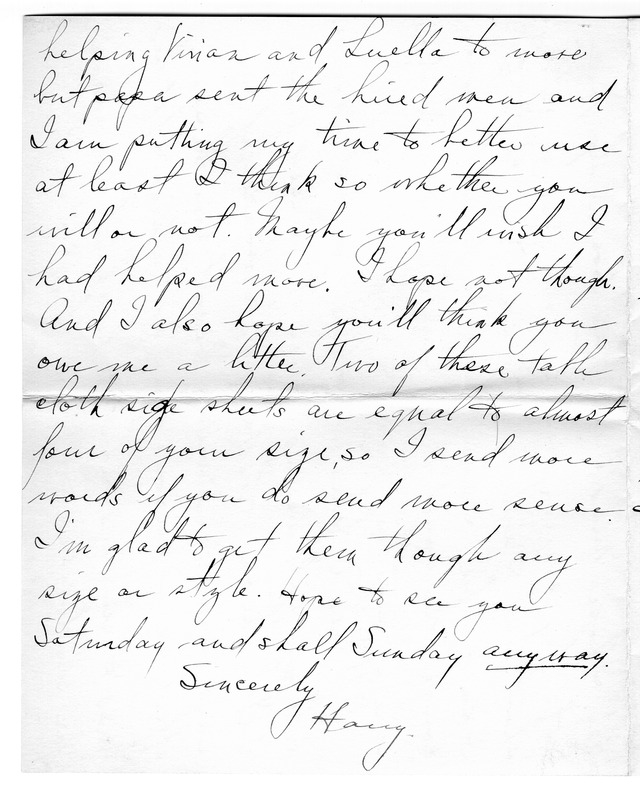 helping Vivian and Luella to move
but papa sent the hired men and
I am putting my time to better use
at least I think so whether you
will or not. Maybe you'll wish I
had helped move. I hope not though.
And I also hope you'll think you
owe me a letter. Two of these table
cloth size sheets are equal to almost
four of your size, so I send more
words if you do send more sense.
I'm glad to get them though any
size or style. Hope to see you
Saturday and shall Sunday anyway.
Sincerely
Harry.